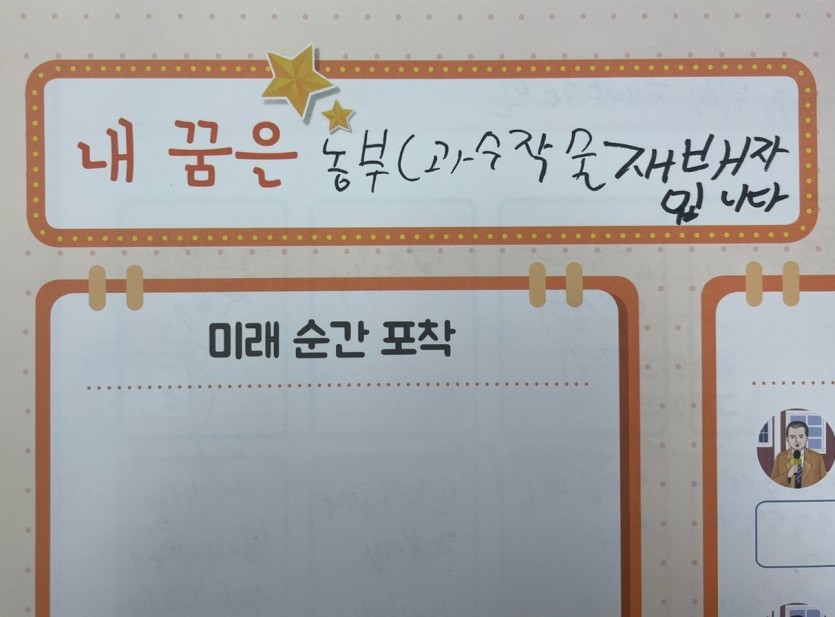 내 꿈은 농부(과수작물재배자
입니다
미래 순간 포착